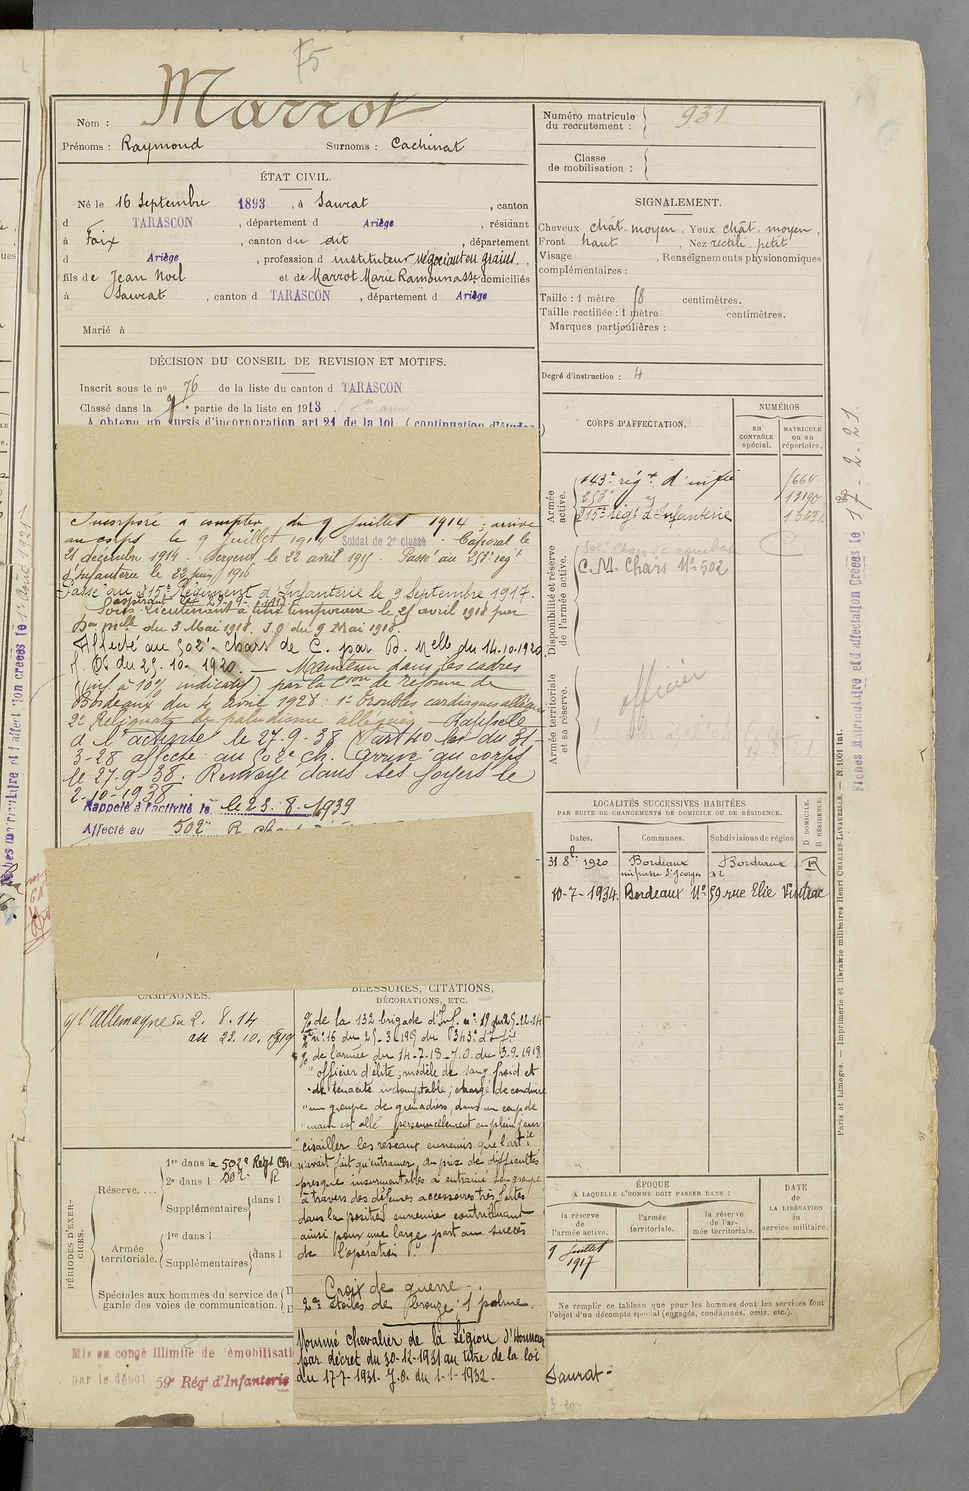 75
Nom : Marrot
Prénoms : Raymond Surnoms : Cachinat
ÉTAT CIVIL.
Né le 16 Septembre 1893, à Saurat, canton
d TARASCON, département d Ariège, résidant
à Foix, canton du dit, département
d Ariège, profession d instituteur négociant en grains.,
fils de Jean Noel et de Marrot Marie domiciliés
à Saurat, canton d TARASCON, département d Ariège
Marié à
DÉCISION DU CONSEIL DE REVISION ET MOTIFS.
Inscrit sous le no 76 de la liste du canton d TARASCON
Classé dans la partie de la liste en 1913.
A obtenu un sursis d'incorporation art 21 de la loi (continuation d'études)
Incorporé à compter du 9 juillet 1914 ; arrivé
au corps le 9 juillet 1914 Soldat de 2e classe. Caporal le
21 décembre 1914. Sergent le 22 avril 1915 Passé au 253e rég t
d'Infanterie le 22 1916
Passé au 215e Régiment d'Infanterie le 9 Septembre 1917.
Sous-lieutenant à titre temporaire le 25 avril 1918 par
du 3 Mai 1918. J.O. du 9 Mai 1918.
Affecté au 502e chars de C. par D. Melle du 14-10-1920
du 25-10-1920. Maintenu dans les cadres
(inf. à 10% indicatif) par la Con de réforme de
Bordeaux du 4 avril 1928 : 1° Troubles cardiaques allégués
2° Reliquats de paludisme allégués - Rappelé
à l'activité le 27-9-38 (art 40 loi du 31-
3-28 affecté au 502e ch. arrivé au corps
le 27-9-38. Renvoyé dans ses foyers le
2-10-1938.
Rappelé à l'activité le le 23-8-1939
Affecté au 502e R
CAMPAGNES.
c/ l'Allemagne du 2. 8. 14
au 23. 10. 1919
BLESSURES, CITATIONS,
DÉCORATIONS, ETC.
% de la 132 brigade d'Inf. no 19 du 25-12-14
n° 16 du 25-3-1915 du
% de l'armée du 14-7-18 J.O. du 13-9-1918
"officier d'élite ; modèle de sang froid et
de ténacité indomptable ; chargé de conduire
"un groupe de grenadiers, dans un coup de
"main est allé personnellement en plein jour
"cisailler les réseaux ennemis que l'artie
n'avait fait qu'entamer, au prix de difficultés
presque insurmontables a entraîné son groupe
à travers des défenses accessoires très fortes
dans la position ennemie contribuant
ainsi pour une large part au succès
de l'opération."
Croix de guerre
2 étoiles de Bronze. 1 palme.
Nommé chevalier de la Légion d'Honneur
par décret du 30-12-1931 au titre de la loi
du 17-7-1931. J.O. du 1-1-1932.
PÉRIODES D'EXERCICES.
Réserve....
1re dans le 502e Régt
2e dans l 502 R
Supplémentaires dans l
Armée territoriale.
1re dans l
Supplémentaires dans l
Spéciales aux hommes du service de
garde des voies de communication.
Mis en congé illimité de démobilisati
par le dépôt 59e Régt d'Infanterie
Numéro matricule
du recrutement : 931
Classe
de mobilisation :
SIGNALEMENT.
Cheveux chât. moyen, Yeux chât. moyen,
Front haut, Nez rectil. petit
Visage , Renseignements physionomiques
complémentaires :
Taille : 1 mètre 58 centimètres.
Taille rectifiée : 1 mètre centimètres.
Marques particulières :
Degré d'instruction : 4
CORPS D'AFFECTATION.
NUMÉROS
au CONTRÔLE spécial.
MATRICULE ou au répertoire.
Armée active.
143e régt d'infie
253e
215e régt d'Infanterie
Disponibilité et réserve de l'armée active.
502e Chars de combat
C. M. Chars N° 502
Armée territoriale et sa réserve.
officier
LOCALITÉS SUCCESSIVES HABITÉES
PAR SUITE DE CHANGEMENTS DE DOMICILE OU DE RÉSIDENCE.
Dates. Communes. Subdivisions de région
D DOMICILE.
R RÉSIDENCE.
31 8bre 1920 Bordeaux Bordeaux R
impasse St Georges
10-7-1934. Bordeaux N° 59 rue Elie Vintrac
ÉPOQUE
À LAQUELLE L'HOMME DOIT PASSER DANS :
la réserve de l'armée active.
l'armée territoriale.
la réserve de l'armée territoriale.
DATE DE LA LIBÉRATION du service militaire.
1 juillet
1917
Ne remplir ce tableau que pour les hommes dont les services font
l'objet d'un décompte spécial (engagés, condamnés, omis, etc.).
Saurat-
Paris et Limoges. — Imprimerie et librairie militaires Henri CHARLES-LAVAUZELLE. — N. 1001 int.
Fiches Matriculaire et d'affectation Créées le 17-2-21